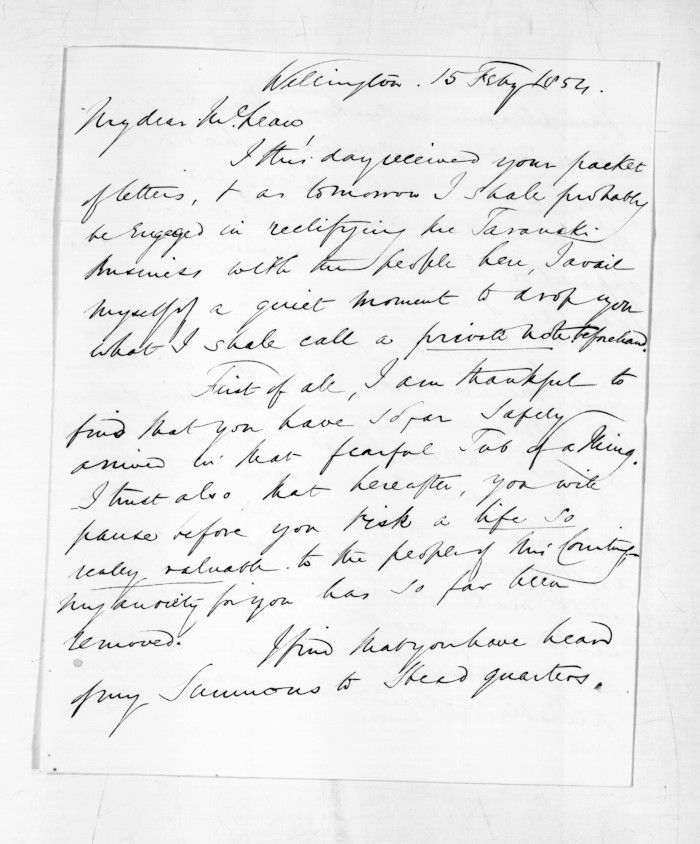 Wellington. 15 Feby 1854.
My dear McLean
I this day received your packet
of letters, & as tomorrow I shall probably
be Engaged in rectifying the Taranaki
Business with the people here, I avail
myself of a quiet moment to drop you
what I shall call a private note beforehand.
First of all, I am thankful to
find that you have so far safely
arrived in that fearful Tub of a thing.
I trust also, that hereafter, you will
pause before you risk a life so
really valuable to the people of this Country -
My anxiety for you has so far been
removed. I find that you have heard
of my Summons to Head quarters.